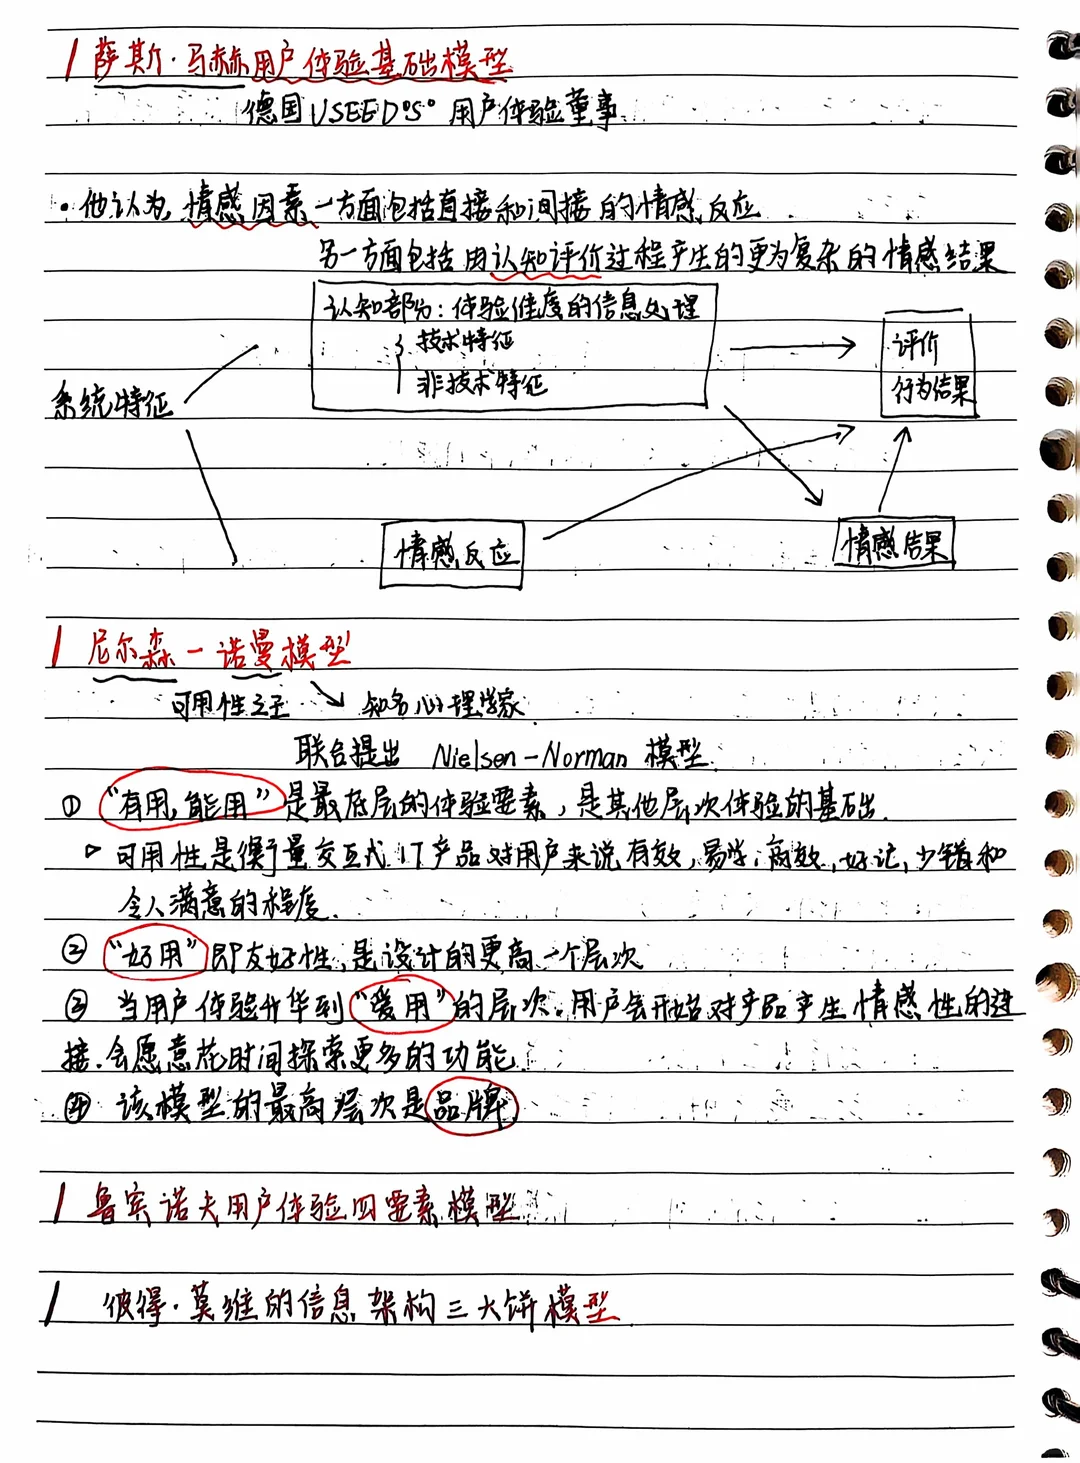 萨斯·马赫用户体验基础模型
德国USEEDS° 用户体验董事
· 他认为, 情感因素一方面包括直接和间接的情感反应
另一方面包括由认知评价过程产生的更为复杂的情感结果
认知部分：体验维度的信息处理
技术特征
非技术特征
评价
行为结果
系统特征
情感反应
情感结果
尼尔森-诺曼模型
可用性之王
知名心理学家
联合提出 Nielsen-Norman 模型
① "有用,能用" 是最底层的体验要素, 是其他层次体验的基础.
▷ 可用性是衡量交互式IT产品对用户来说有效,易学,高效,好记,少错和
令人满意的程度.
② "好用" 即友好性,是设计的更高一个层次
③ 当用户体验升华到"爱用"的层次,用户会开始对产品产生情感性的连
接.会愿意花时间探索更多的功能.
④ 该模型的最高层次是品牌
鲁宾诺夫用户体验四要素模型
彼得·莫维的信息架构三大饼模型